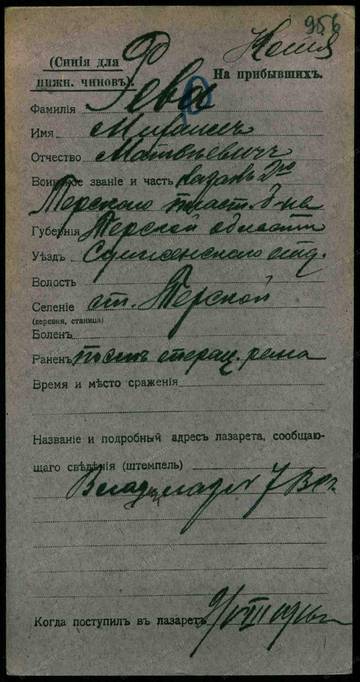 956
Копия
(Синія для
нижн. чиновъ).
На прибывшихъ.
Фамилія Рева
Имя Михаилъ
Отчество Матвѣевичъ
Воинское званіе и часть казакъ 2го
Терскаго пласт. б-на
Губернія Терской области
Уѣздъ Сунженскаго отд.
Волость
Селеніе ст. Терской
(деревня, станица)
Боленъ
Раненъ послѣ операц. рана
Время и мѣсто сраженія
Названіе и подробный адресъ лазарета, сообщаю-
щаго свѣдѣнія (штемпель)
7
Когда поступилъ въ лазаретъ